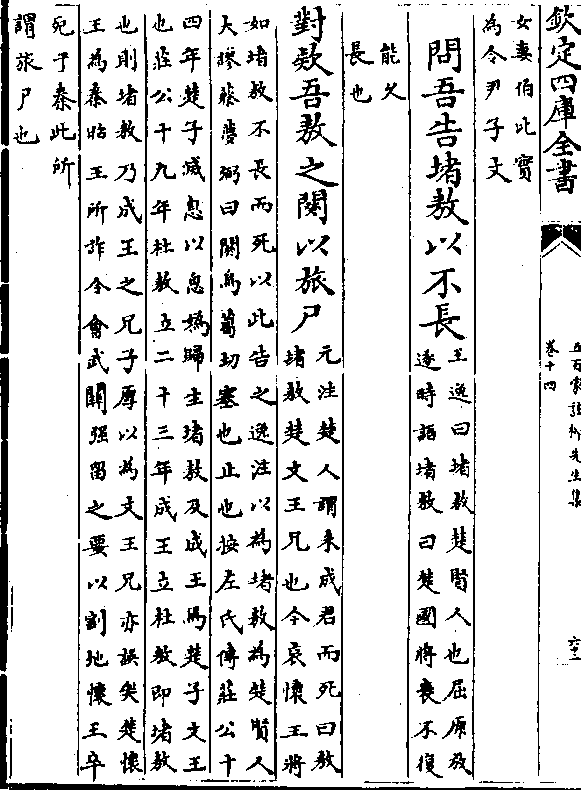 欽定四庫全書
五百家註柳先生集
卷十四
女妻伯比實
為令尹子文
問吾告堵敖以不長
王逸曰堵敖楚賢人也屈原放
逐時語堵敖曰楚國將衰不復
能久
長也
對欵吾敖之閼以旅尸
元注楚人謂未成君而死曰敖
堵敖楚文王兄也今哀懷王將
如堵敖不長而死以此告之逸注以為堵敖為楚賢人
大謬張夢弼曰閼烏葛切塞也止也按左氏傳莊公十
四年楚子滅息以息媯歸生堵敖及成王焉楚子文王
也莊公十九年杜敖立二十三年成王立杜敖即堵敖
也則堵敖乃成王之兄子厚以為文王兄亦誤矣楚懷
王為秦昭王所詐令會武關强留之要以割地懷王卒
死于秦此所
謂旅尸也